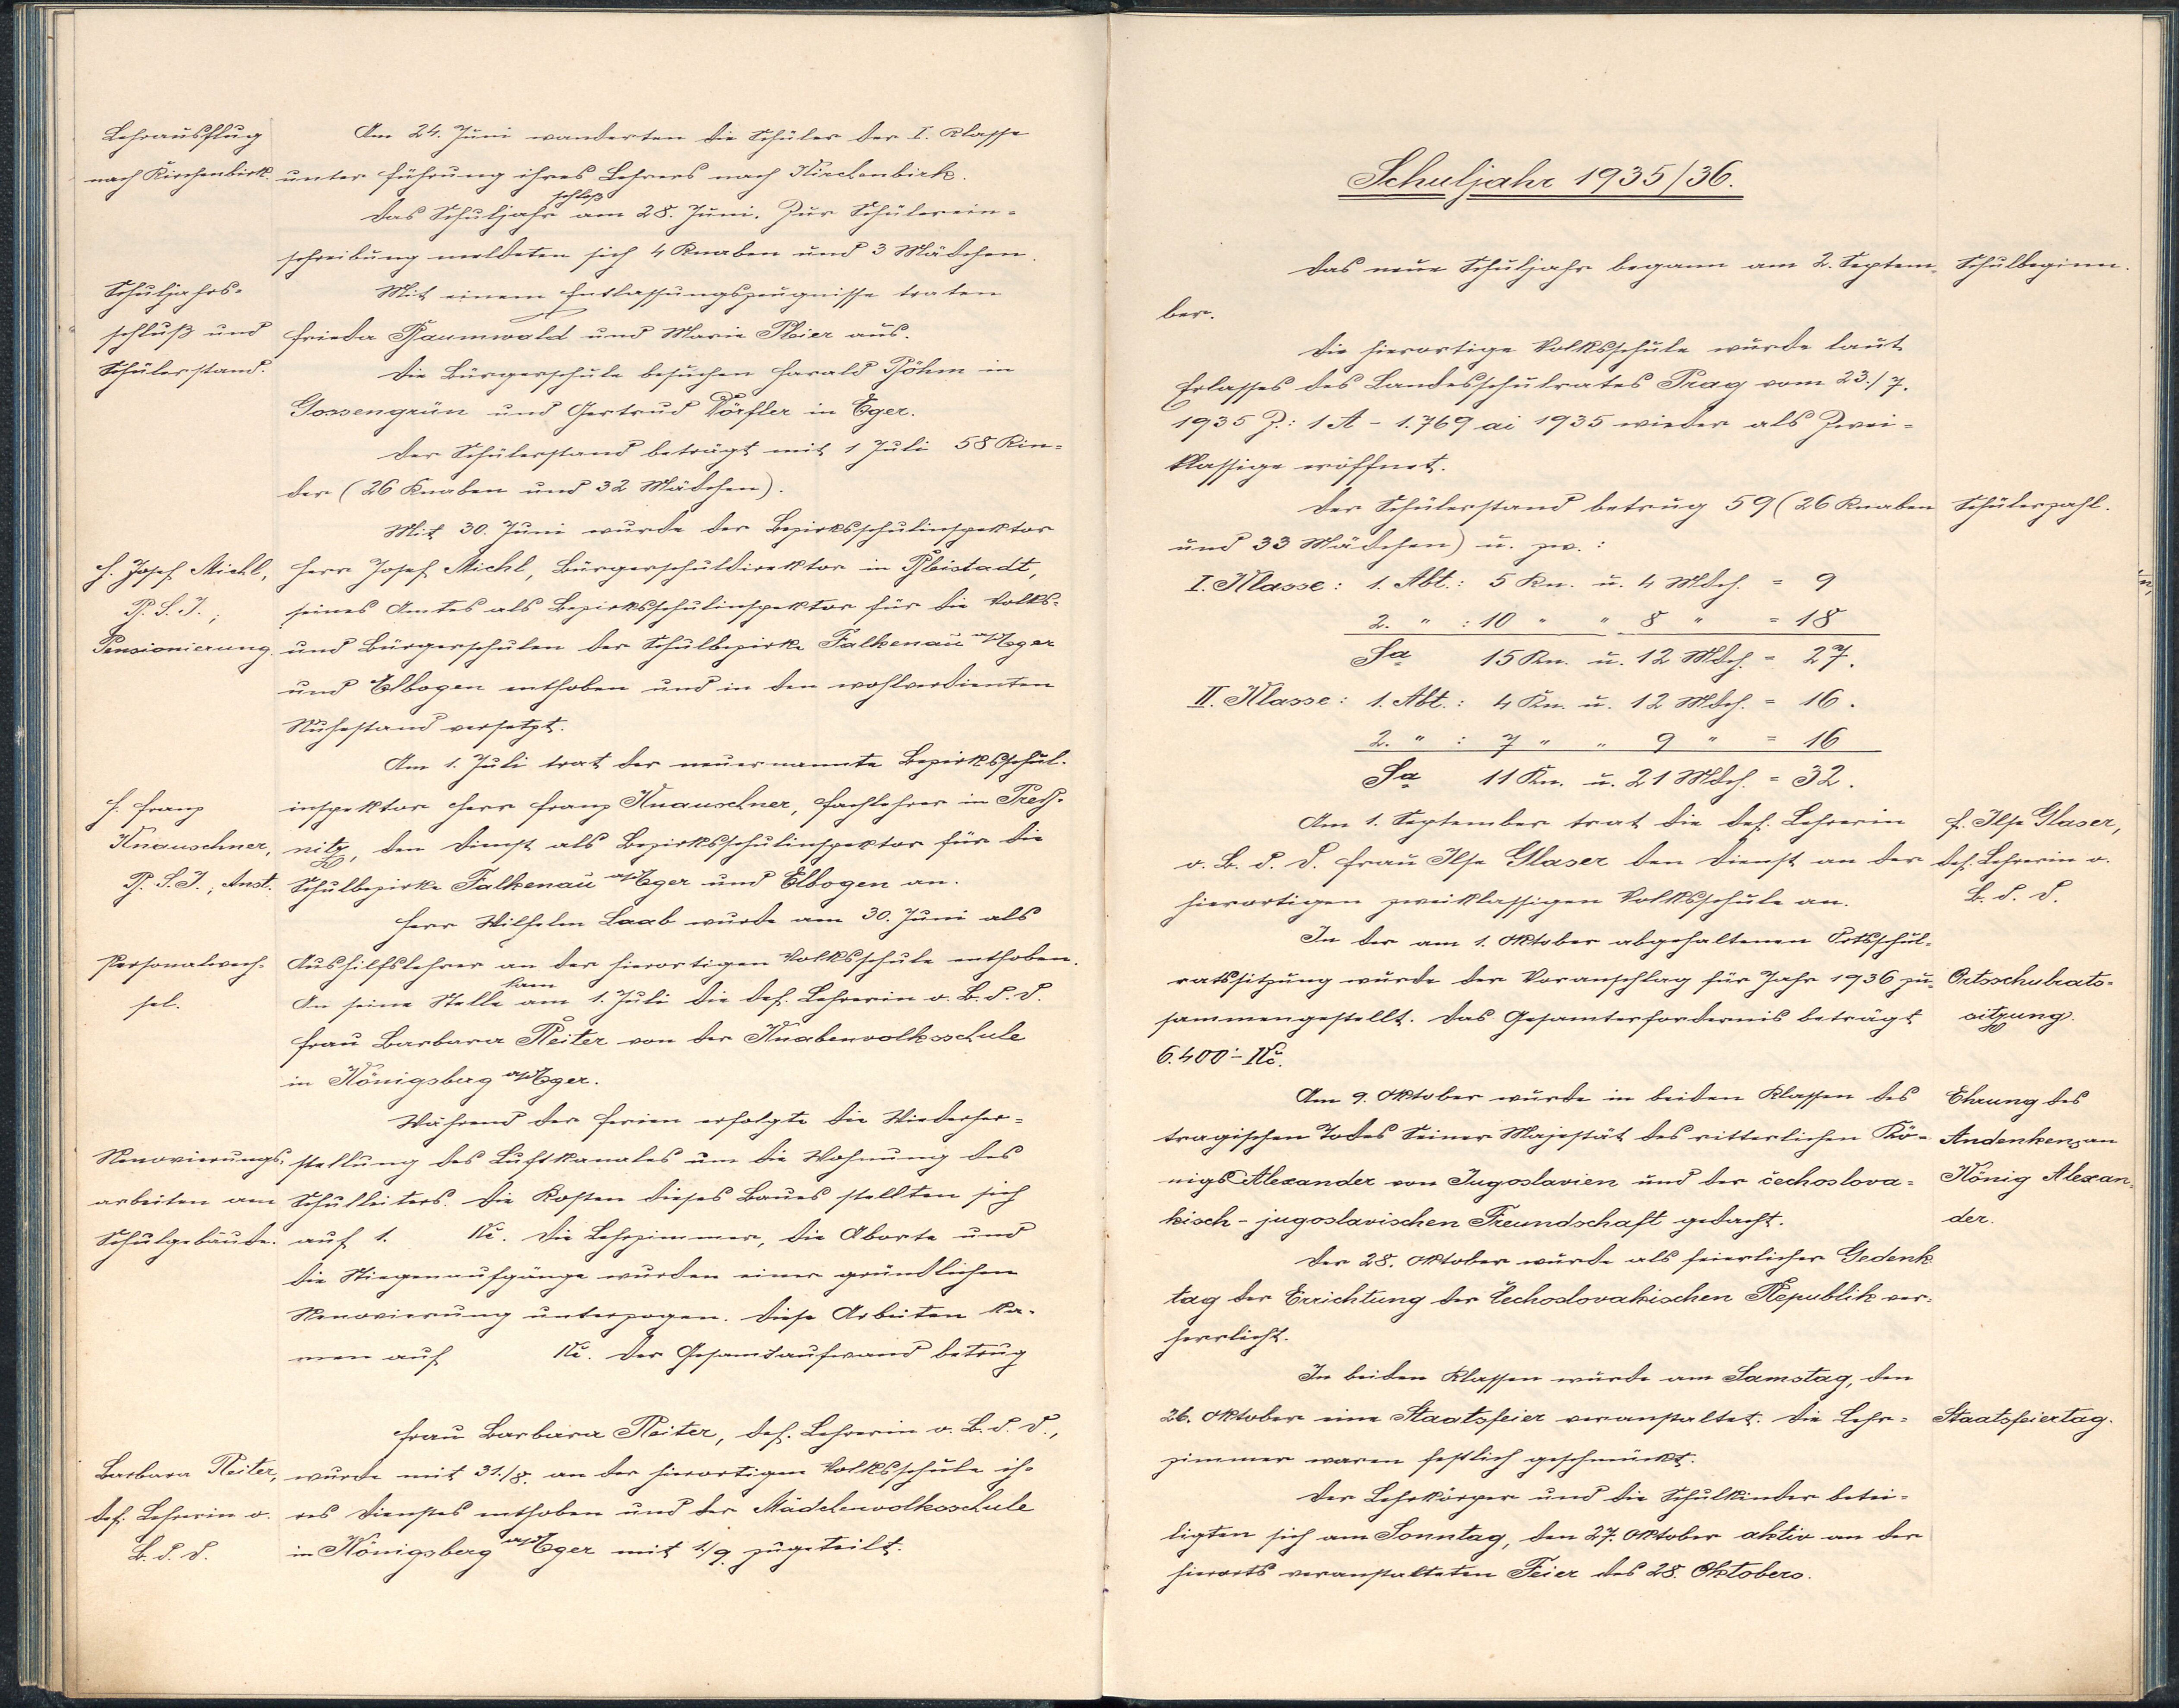 Lehrausflug
nach Kirchenbirk.
Am 24. Juni wanderten die Schüler der I. Klasse
unter Führung ihres Lehrers nach Kirchenbirk.
schloß
Das Schuljahr am 28. Juni. Zur Schülerein-
schreibung meldeten sich 4 Knaben und 3 Mädchen.
Schuljahrs-
schluß und
Schülerstand.
Mit einem Entlassungszeugnisse traten
Frieda Baumwald und Marie Pleier aus.
Die Bürgerschule besuchen Harald Böhm in
Gossengrün und Gertrud Dörfler in Eger.
Der Schülerstand beträgt mit 1 Juli 58 Kin-
der (26 Knaben und 32 Mädchen).
Mit 30. Juni wurde der Bezirksschulinspektor
H. Josef Michl,
B. S. I.;
Pensionierung.
Herr Josef Michl, Bürgerschuldirektor in Bleistadt,
seines Amtes als Bezirksschulinspektor für die Volks-
und Bürgerschulen der Schulbezirke Falkenau a/Eger
und Elbogen enthoben und in den wohlverdienten
Ruhestand versetzt.
Am 1. Juli trat der neuernannte Bezirksschul-
H. Franz
Knauschner,
B. S. I.; Anst.
inspektor Herr Franz Knauschner, Fachlehrer in Pres-
nitz, den Dienst als Bezirksschulinspektor für die
Schulbezirke Falkenau a/Eger und Elbogen an.
Herr Wilhelm Laab wurde am 30. Juni als
Personalwech-
sel.
Aushilfslehrer an der hierortigen Volksschule enthoben.
kam
An seine Stelle am 1. Juli die def. Lehrerin o. B. d. D.
Frau Barbara Reiter von der Knabenvolksschule
in Königsberg a/Eger.
Während der Ferien erfolgte die Wiederher-
Renovierungs-
arbeiten am
Schulgebäude.
stellung des Luftkanales um die Wohnung des
Schulleiters. Die Kosten dieses Baues stellten sich
auf 1. Kč. Die Lehrzimmer, die Aborte und
die Stiegenaufgänge wurden einer gründlichen
Renovierung unterzogen. Diese Arbeiten ka-
men auf Kč. Der Gesamtaufwand betrug
Frau Barbara Reiter, def. Lehrerin o. B. d. D.,
Barbara Reiter,
def. Lehrerin o.
B. d. D.
wurde mit 31./8. an der hierortigen Volksschule ih-
res Dienstes enthoben und der Mädchenvolksschule
in Königsberg a/Eger mit 1./9. zugeteilt.
Schuljahr 1935/36.
Das neue Schuljahr begann am 2. Septem-
ber.
Schulbeginn.
Die hierortige Volksschule wurde laut
Erlasses des Landesschulrates Prag vom 23./7.
1935 Z.: 1 A - 1.769 ai 1935 wieder als Zwei-
klassige eröffnet.
Der Schülerstand betrug 59 (26 Knaben
und 33 Mädchen) u. zw.:
Schülerzahl.
I. Klasse: 1. Abt.: 5 Kn. u. 4 Mdch. = 9
2. " : 10 " " 8 " = 18
Sa 15 Kn. u. 12 Mdch. = 27.
II. Klasse: 1. Abt.: 4 Kn. u. 12 Mdch. = 16.
2. " : 7 " " 9 " = 16
Sa 11 Kn. u. 21 Mdch. = 32.
Am 1. September trat die def. Lehrerin
o. B. d. D. Frau Ilse Glaser den Dienst an der
hierortigen zweiklassigen Volksschule an.
F. Ilse Glaser,
def. Lehrerin o.
B. d. D.
In der am 1. Oktober abgehaltenen Ortsschul-
ratssitzung wurde der Voranschlag für Jahr 1936 zu-
sammengestellt. Das Gesamterfordernis beträgt
6.400·- Kč.
Ortsschulrats-
sitzung.
Am 9. Oktober wurde in beiden Klassen des
tragischen Todes Seiner Majestät des ritterlichen Kö-
nigs Alexander von Jugoslavien und der čechoslova-
kisch-jugoslavischen Freundschaft gedacht.
Ehrung des
Andenkens an
König Alexan-
der.
Der 28. Oktober wurde als feierlicher Gedenk
tag der Errichtung der Čechoslovakischen Republik ver-
herrlicht.
In beiden Klassen wurde am Samstag, den
26. Oktober eine Staatsfeier veranstaltet. Die Lehr-
zimmer waren festlich geschmückt.
Staatsfeiertag.
Der Lehrkörper und die Schulkinder betei-
ligten sich am Sonntag, den 27. Oktober aktiv an der
hierorts veranstalteten Feier des 28. Oktobers.